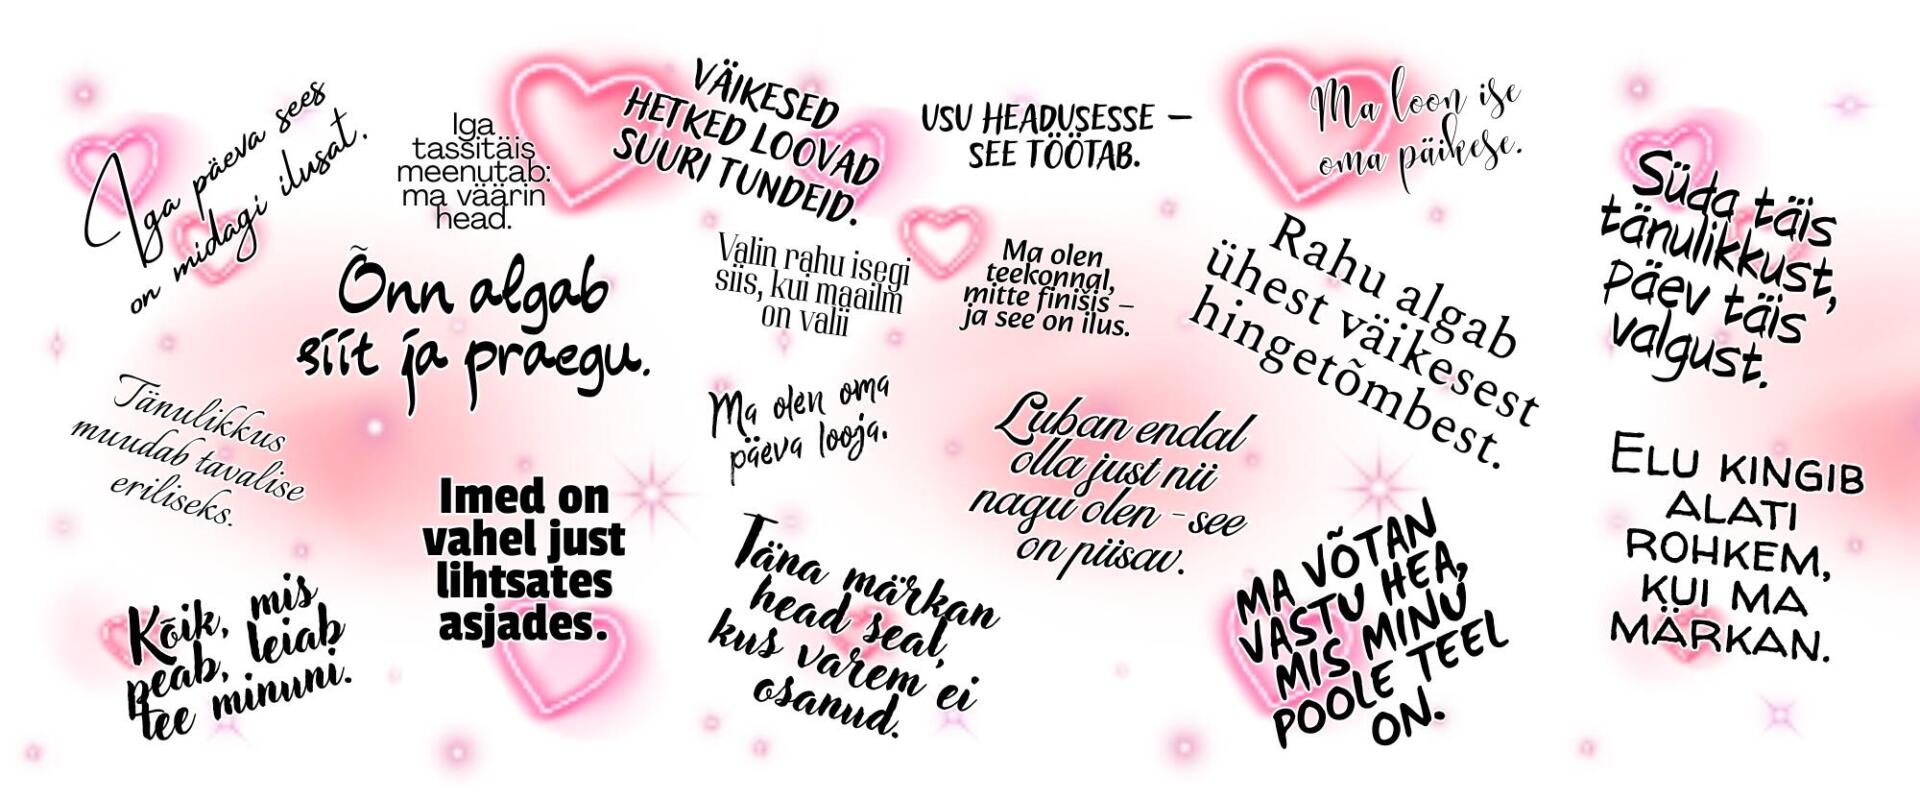 Iga päeva sees
on midagi ilusat.
Iga
tassitäis
meenutab:
ma väärin
head.
VÄIKESED
HETKED LOOVAD
SUURI TUNDEID.
USU HEADUSESSE –
SEE TÖÖTAB.
Ma loon ise
oma päikese.
Süda täis
tänulikkust,
päev täis
valgust.
Õnn algab
siit ja praegu.
Valin rahu isegi
siis, kui maailm
on valii
Ma olen
teekonnal,
mitte finišis –
ja see on ilus.
Rahu algab
ühest väikesest
hingetõmbest.
Tänulikkus
muudab tavalise
eriliseks.
Imed on
vahel just
lihtsates
asjades.
Ma olen oma
päeva looja.
Luban endal
olla just nii
nagu olen - see
on piisav.
ELU KINGIB
ALATI
ROHKEM,
KUI MA
MÄRKAN.
Kõik, mis
peab, leiab
tee minuni.
Täna märkan
head seal,
kus varem ei
osanud.
MA VÕTAN
VASTU HEA,
MIS MINU
POOLE TEEL
ON.